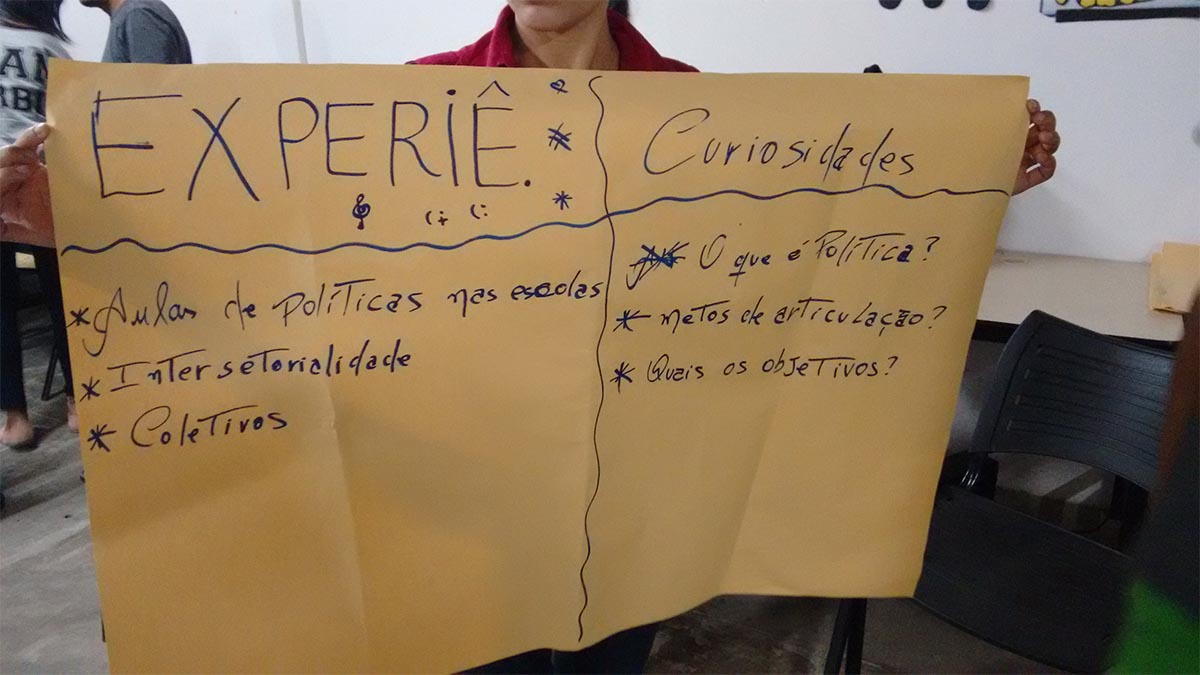 EXPERIÊ.
* Aulas de políticas nas escolas
* Intersetorialidade
* Coletivos
Curiosidades
O que é Política?
* metos de articulação?
* Quais os objetivos?